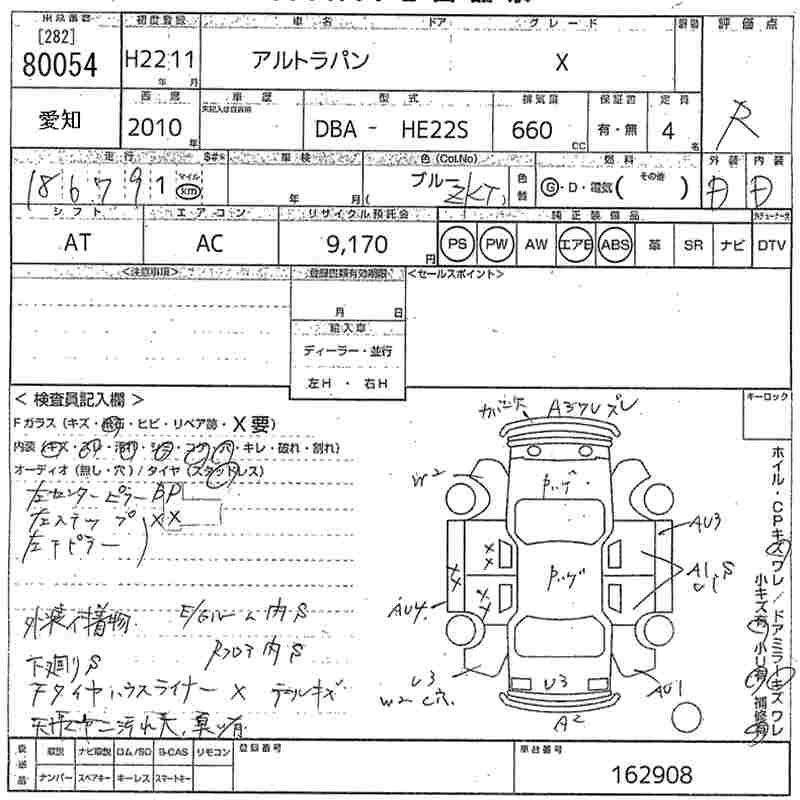 初度登録 車名 ドア グレード 評価点
[282]
80054 H22 11 アルトラパン X
年 月
愛知 西暦 車歴 型式 排気量 保証書 定員
2010 年 DBA - HE22S 660 CC 有・無 4 名 R
走行 車検 色(Col.No) 燃料 その他 外装 内装
186791 マイル km 年 月 ( ブルー ZKT) 色替 G・D・電気( ) D D
シフト エアコン リサイクル預託金 純正装備品
AT AC 9,170 円 PS PW AW エアB ABS 革 SR ナビ DTV
<注意事項> 登録書類有効期限 <セールスポイント>
月 日
輸入車
ディーラー・並行
左H ・ 右H
< 検査員記入欄 > キーロック
Fガラス(キズ・飛石・ヒビ・リペア跡・X要)
内装(キズ・スレ・汚れ・シミ・コゲ・穴・キレ・破れ・割れ)
オーディオ(無し・穴)/タイヤ(スタッドレス)
左センターピラー BP
左ステップ XX
左Fピラー
外装付着物 E/Gルーム内S
下廻りS Rフロア内S
Fタイヤハウスライナー X
カバー欠 A3 ワレ ズレ
W2
ハゲ
AU3
XX XX
ハゲ
A1 S
U1
XX XX
AU4
U3
W2 C穴
U3
AU1
A2
ホイル・CPキズワレ/ドアミラーキズワレ
小キズ有 小U有 補修有
欠品 取説 ナビ取説 ロム/SD B-CAS リモコン 登録番号 車台番号
ナンバー スペアキー キーレス スマートキー 162908